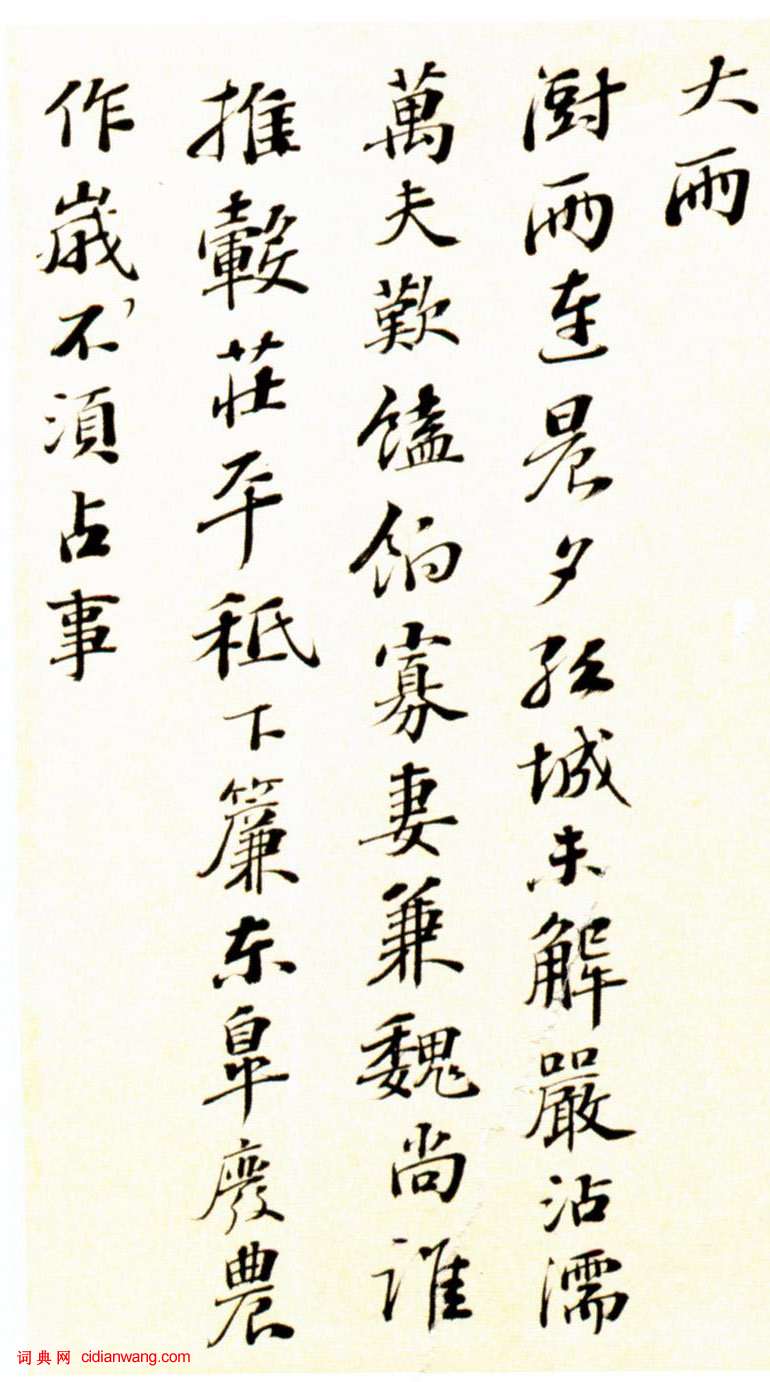 大雨
澍雨連晨夕孤城未解嚴沾濡
萬夫歎饁餉寡妻兼魏尚誰
推轂莊平秖下簾東皐廢農
作歲不須占事
词典网 cidianwang.com